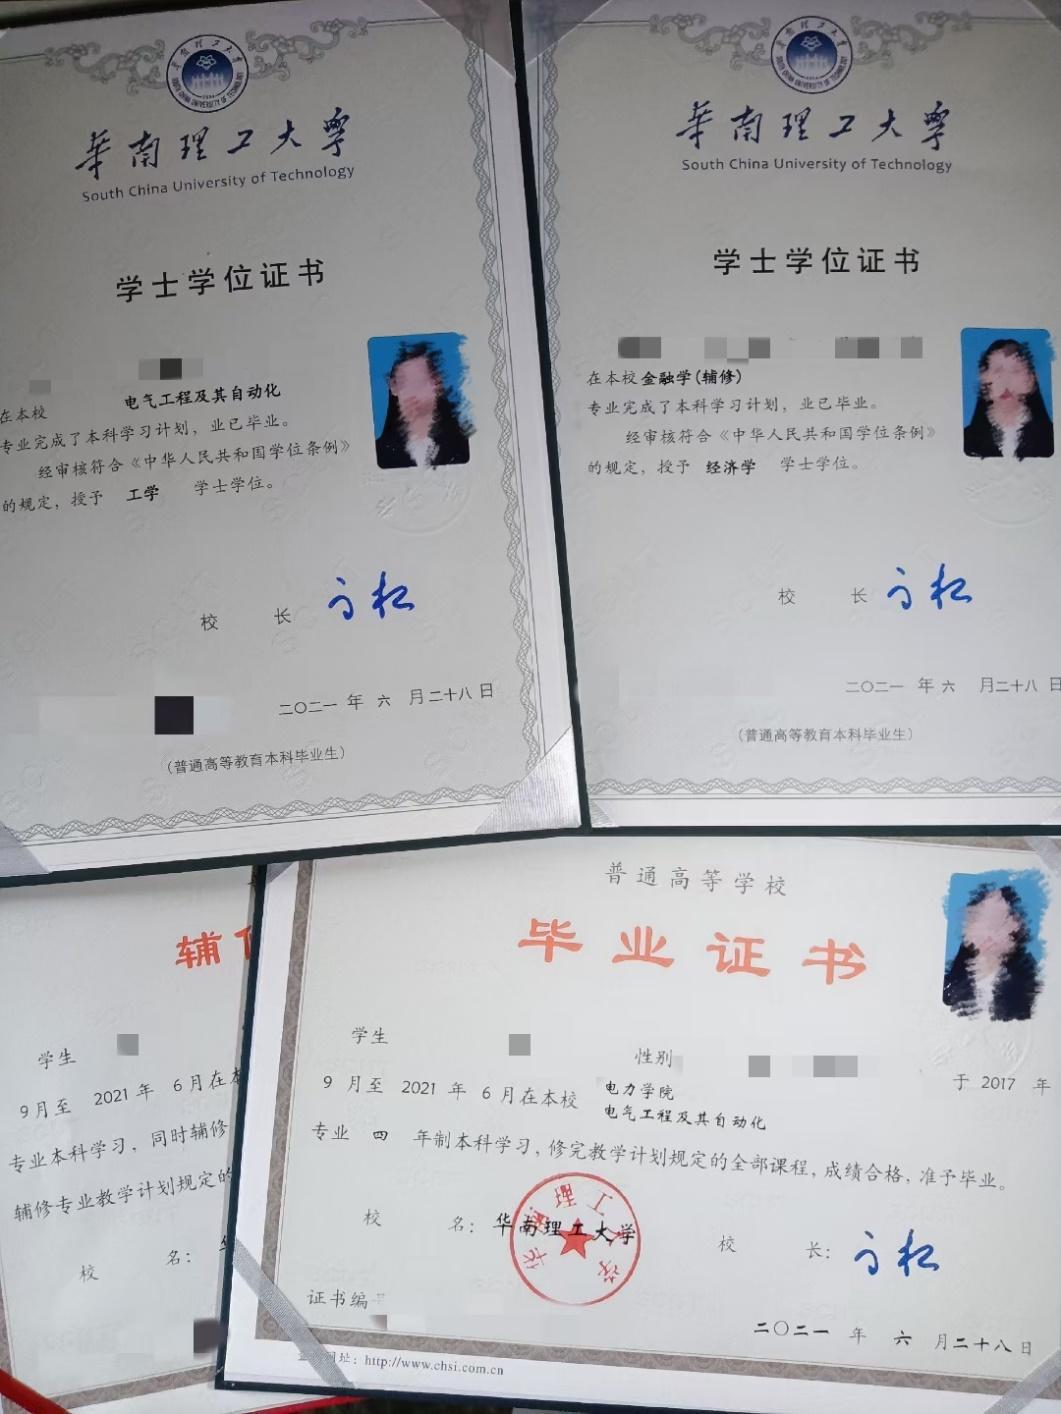 華南理工大學
South China University of Technology
学士学位证书
在本校 电气工程及其自动化
专业完成了本科学习计划，业已毕业。
经审核符合《中华人民共和国学位条例》
的规定，授予 工学 学士学位。
校 长
二〇二一 年 六 月 二十八 日
（普通高等教育本科毕业生）
華南理工大學
South China University of Technology
学士学位证书
在本校 金融学(辅修)
专业完成了本科学习计划，业已毕业。
经审核符合《中华人民共和国学位条例》
的规定，授予 经济学 学士学位。
校 长
二〇二一 年 六 月二十八 日
（普通高等教育本科毕业生）
辅
学生
9月至 2021 年 6月在本
专业本科学习，同时辅修
辅修专业教学计划规定的
校 名：
普通高等学校
毕业证书
学生 性别 于 2017 年
9 月至 2021 年 6 月在本校 电力学院
电气工程及其自动化
专业 四 年制本科学习，修完教学计划规定的全部课程，成绩合格，准予毕业。
校 名：华南理工大学 校 长：
证书编号
二〇二一 年 六 月二十八日
网址：http://www.chsi.com.cn